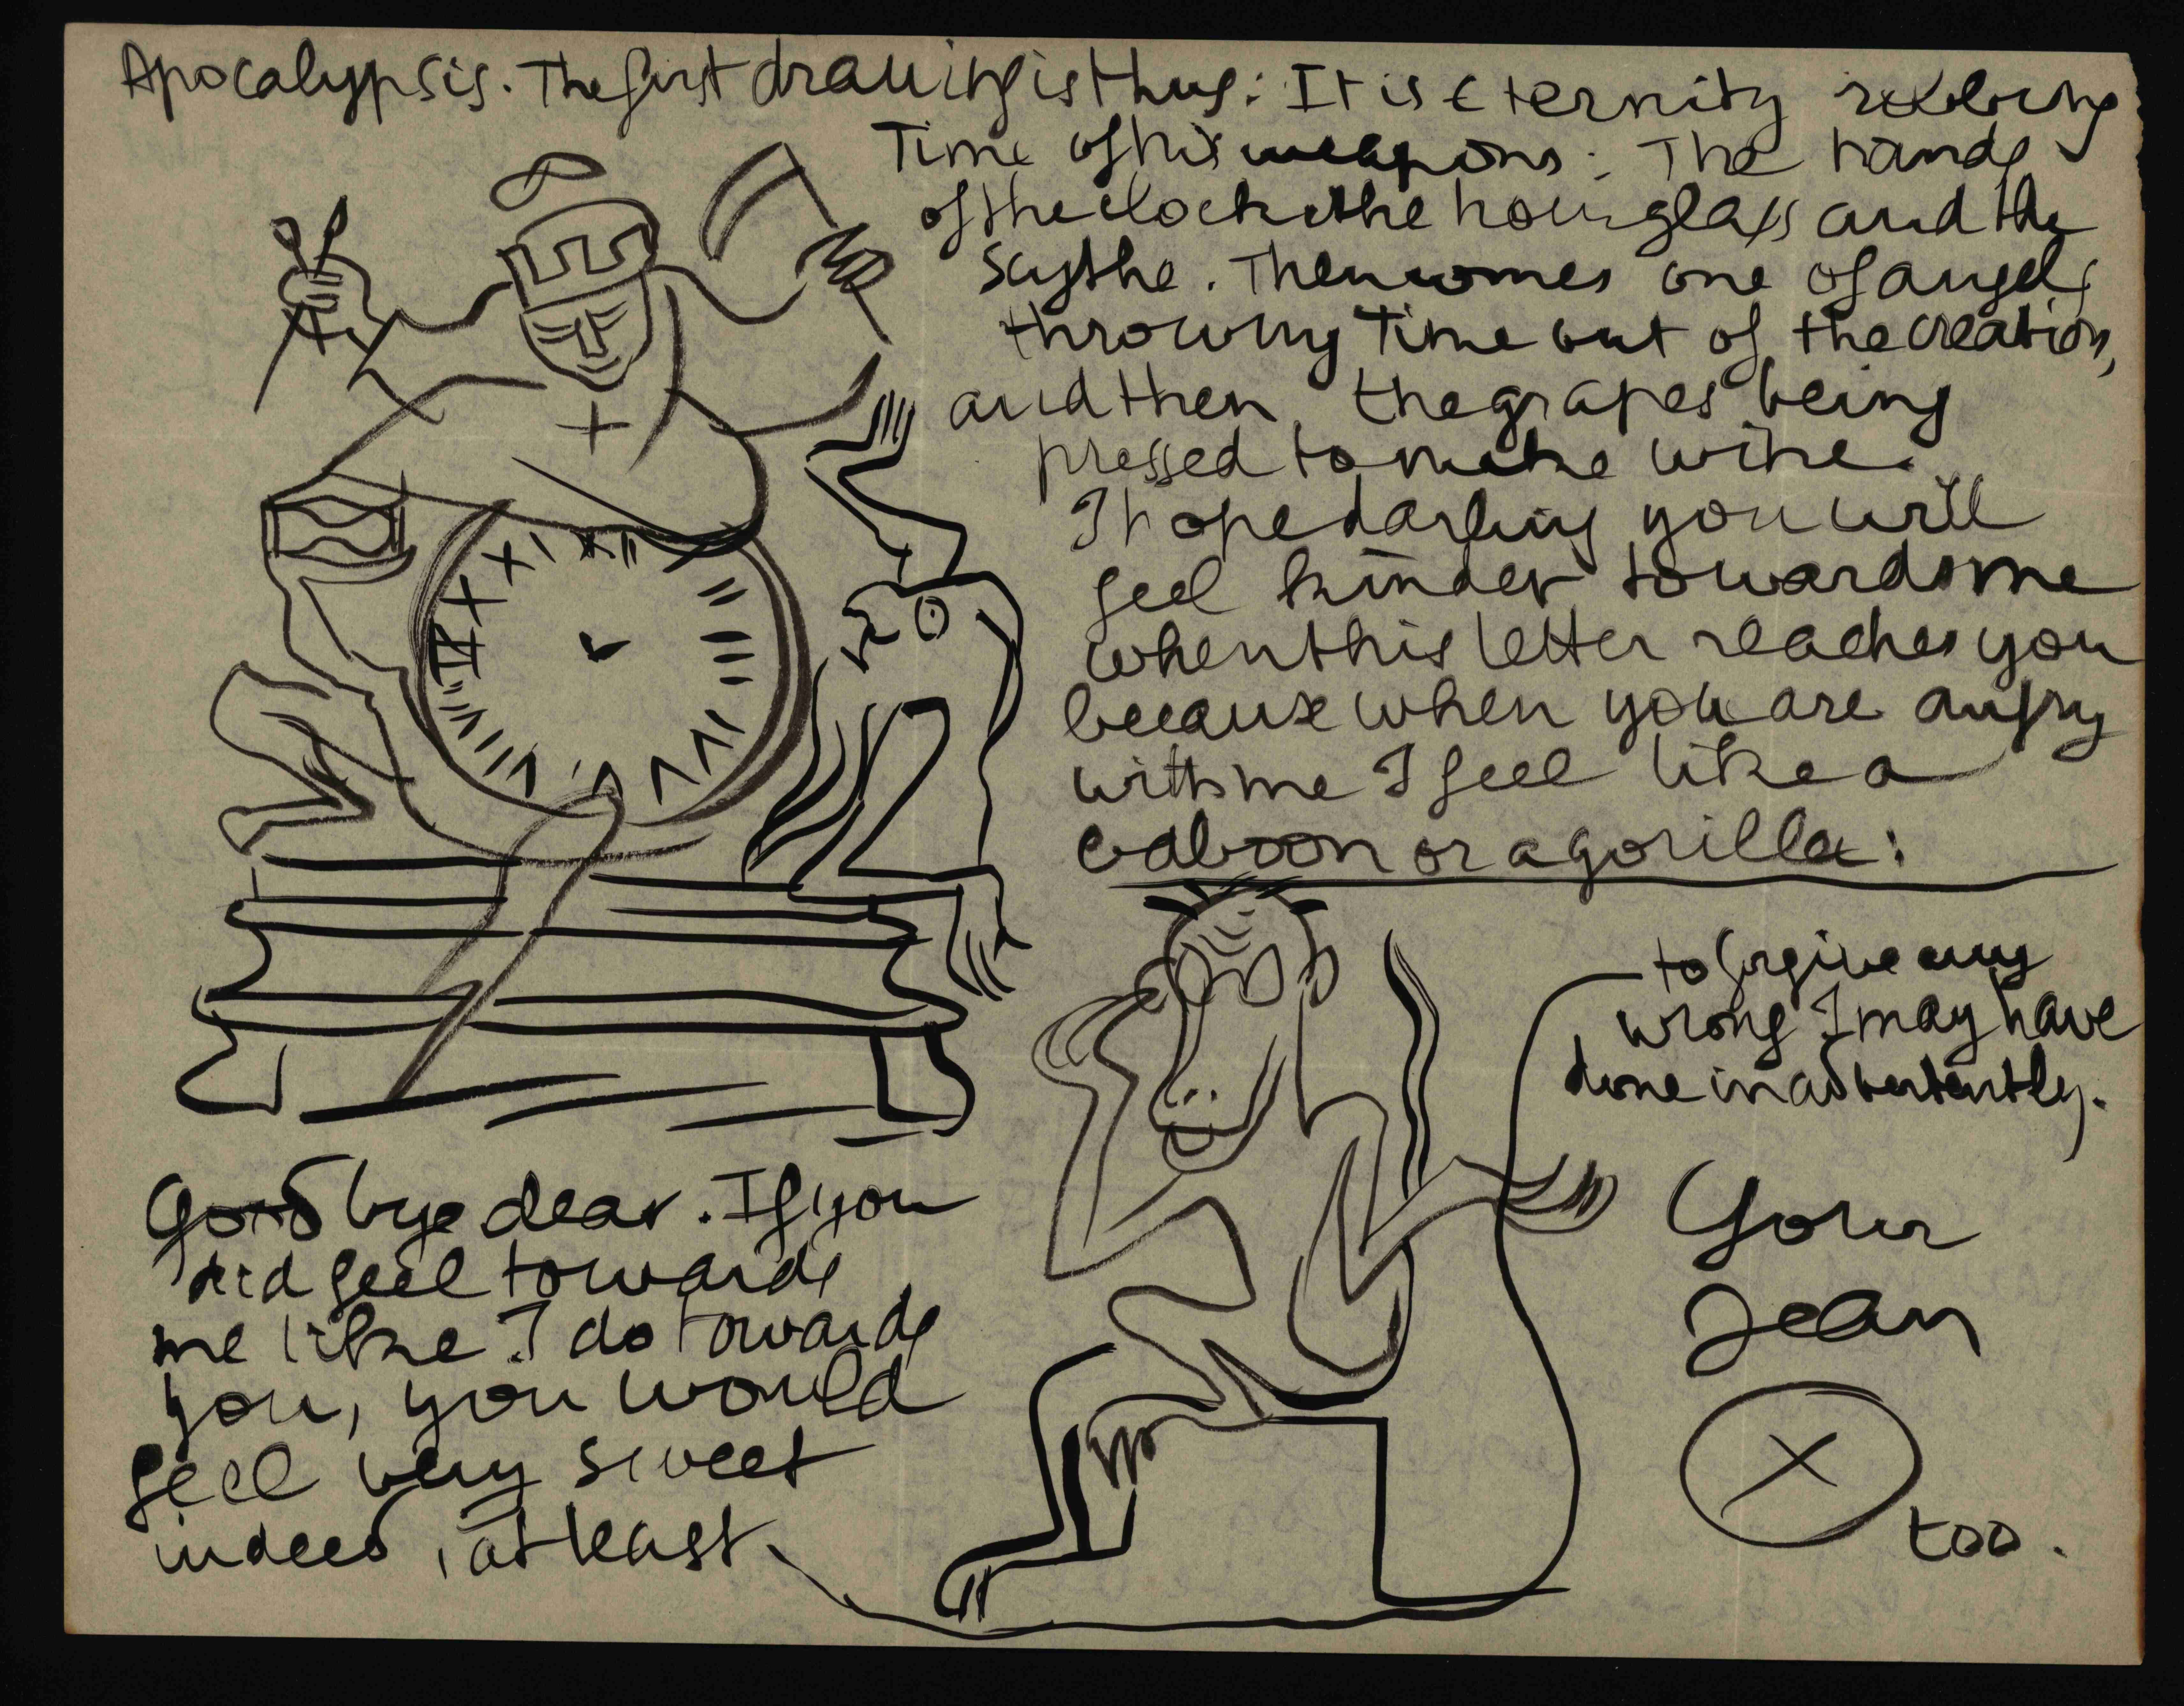 Apocalypsis. The first drawing is thus: It is Eternity robbing
Time of his weapons: The hands
of the clock the hourglass and the
Scythe. Then comes one of angels
throwing Time out of the creation,
and then the grapes being
pressed to make wine.
I hope darling you will
feel kinder towards me
when this letter reaches you
because when you are angry
with me I feel like a
baboon or a gorilla:
XI XII II III IIII
X
IX
Good bye dear. If you
did feel towards
me like I do towards
you, you would
feel very sweet
indeed, at least
to forgive any
wrong I may have
done inadvertently.
Your
Jean
X
too.